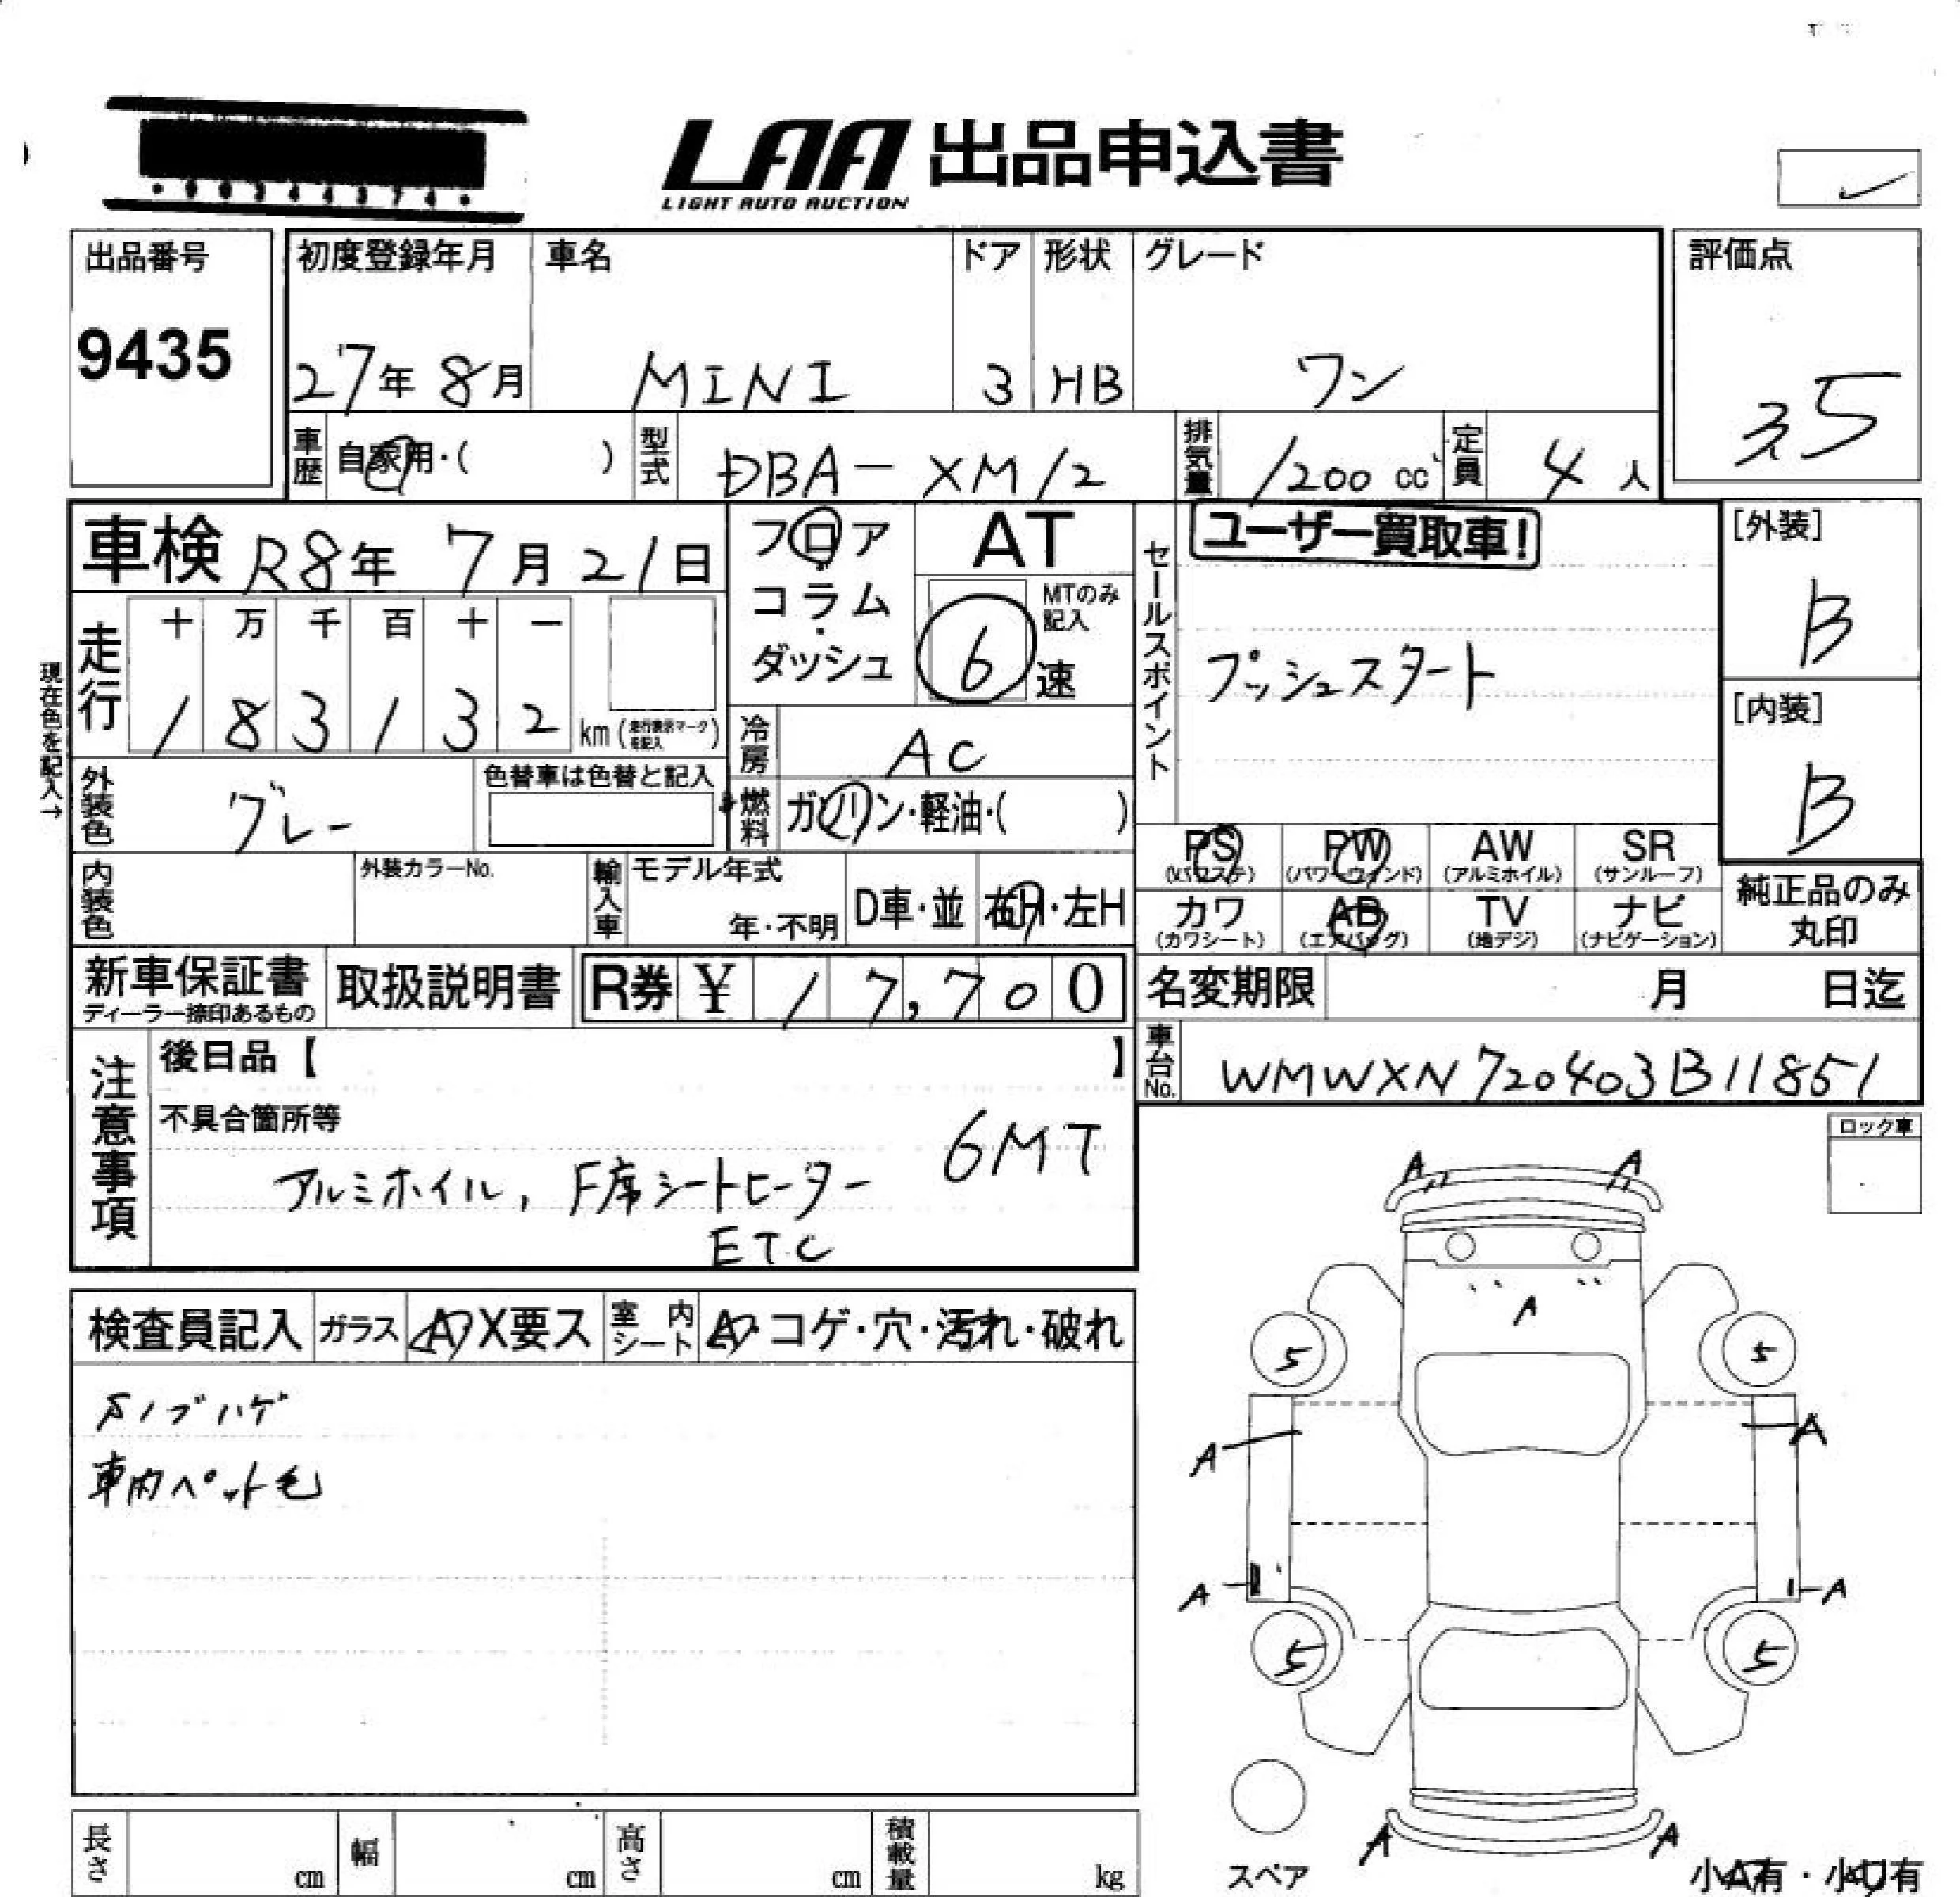 LAA 出品申込書
LIGHT AUTO AUCTION
出品番号
9435
初度登録年月
27年 8月
車名
MINI
ドア
3
形状
HB
グレード
ワン
評価点
3.5
車歴
自家用・( )
型式
DBA-XM12
排気量
1200 cc
定員
4 人
車検 R8年 7月 21日
フロア
コラム
ダッシュ
AT
MTのみ
記入
6 速
セールスポイント
ユーザー買取車!
プッシュスタート
[外装]
B
[内装]
B
現在色を記入→
走行
十 万 千 百 十 一
1 8 3 1 3 2 km (走行表示マークを記入)
冷房
AC
外装色
グレー
色替車は色替と記入
燃料
ガソリン・軽油・( )
内装色
外装カラーNo.
輸入車
モデル年式
年・不明
D車・並
右H・左H
PS
(パワステ)
PW
(パワーウィンド)
AW
(アルミホイル)
SR
(サンルーフ)
カワ
(カワシート)
AB
(エアバッグ)
TV
(地デジ)
ナビ
(ナビゲーション)
純正品のみ
丸印
新車保証書
ディーラー捺印あるもの
取扱説明書
R券 ¥ 17,700
名変期限 月 日迄
車台No.
WMWXN720403B11851
注意事項
後日品【 】
不具合箇所等
6MT
アルミホイル, F席シートヒーター
ETC
ロック車
検査員記入
ガラス
A・X要ス
室内シート
A・コゲ・穴・汚れ・破れ
Sノブハゲ
車内ペット毛
A A
A
5 5
A A
A A
5 5
A A
スペア
小A有・小U有
長さ cm
幅 cm
高さ cm
積載量 kg